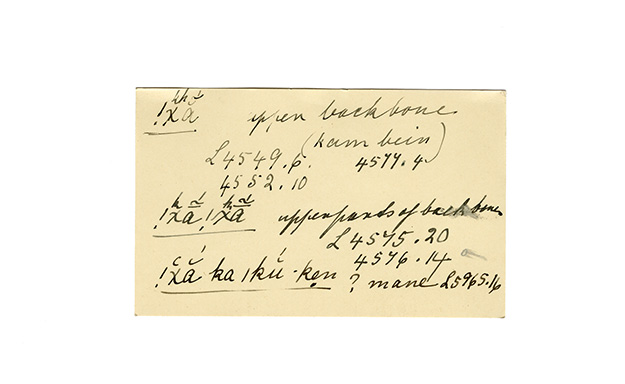 !χã upper backbone
(kambein)
L4549.6. 4577.4
4552.10
!χã!χã upperparts of backbone
L4575.20
4576.14
!χã ka ıkú-ken ? mane L5965.16